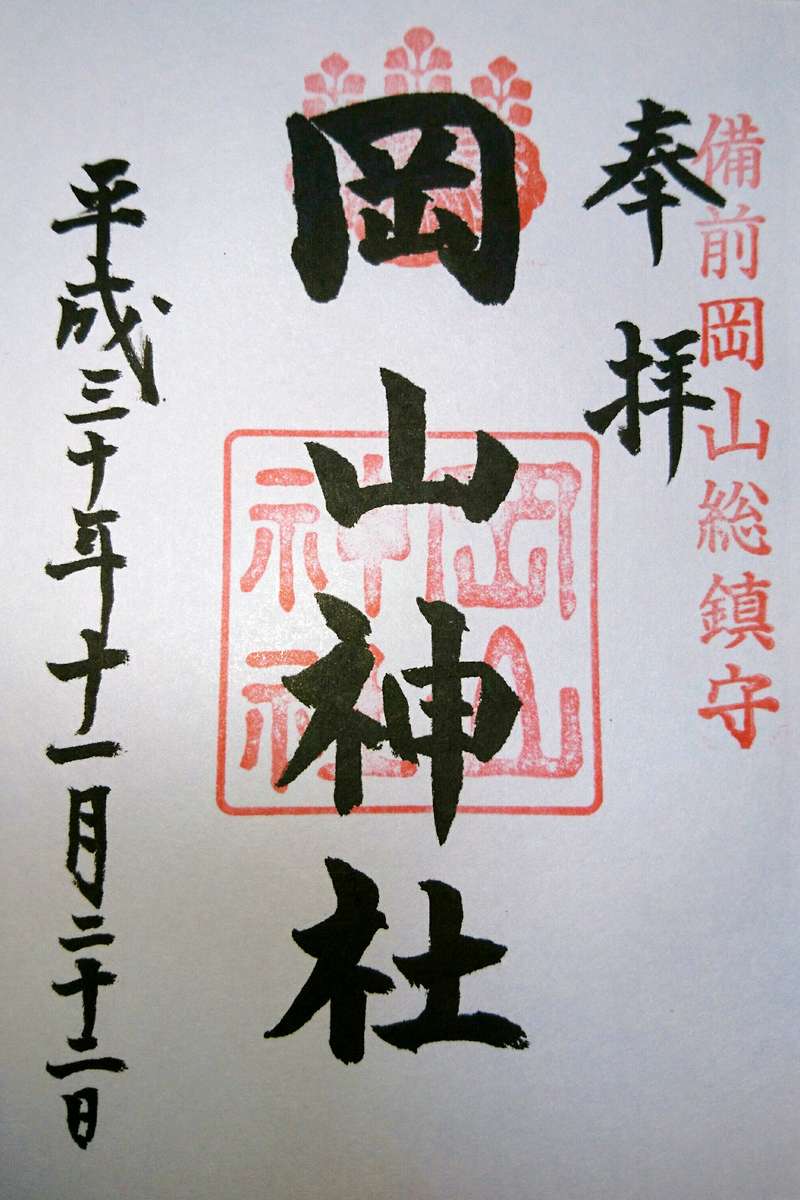 備前岡山総鎮守
奉拝
岡山神社
岡山
神社
平成三十年十一月二十二日